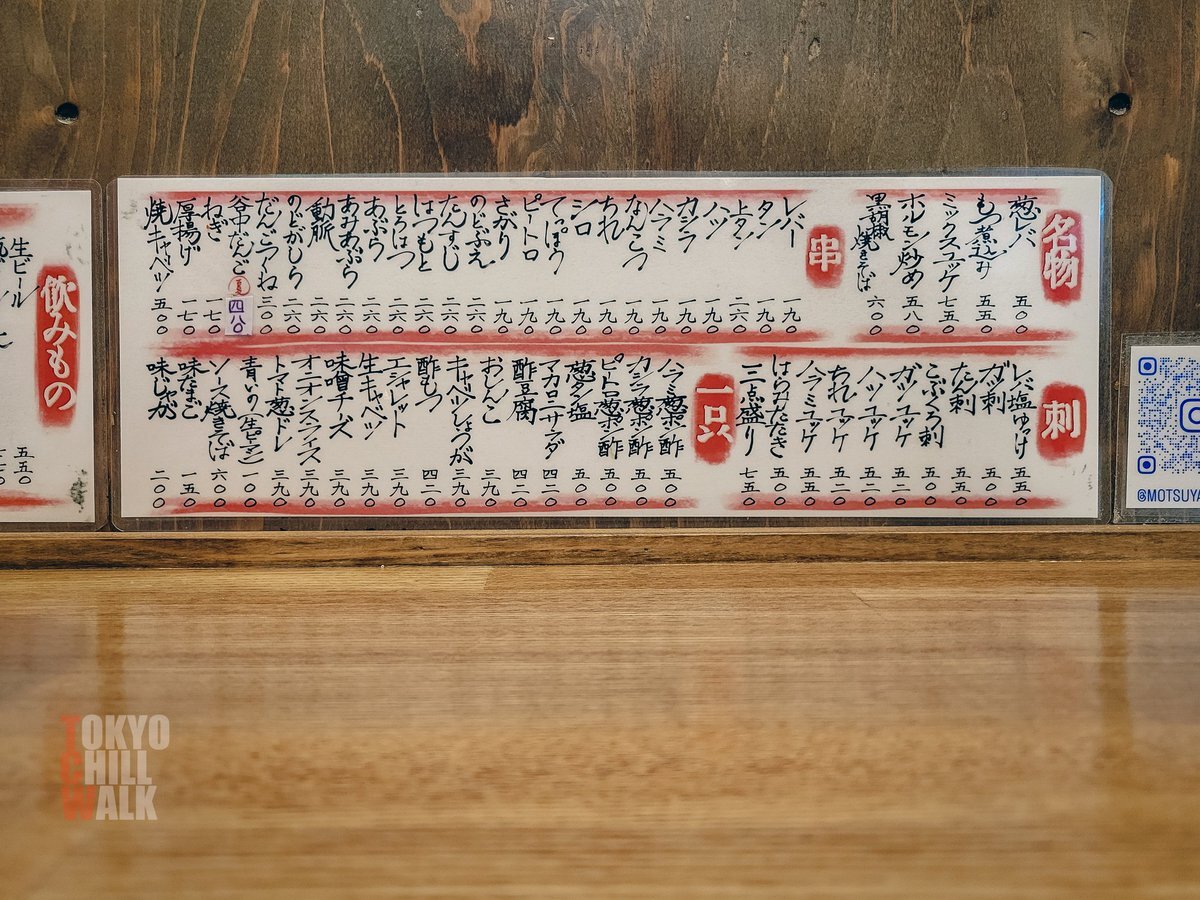 名物
葱レバ
もつ煮込み 五五〇
ミックスユッケ
ホルモン炒め 五八〇
黒胡椒焼きそば 六〇〇
串
レバー 一九〇
タン 一九〇
上タン 二六〇
ハツ 一九〇
カシラ 一九〇
ハラミ 一九〇
なんこつ 一九〇
ちれ 一九〇
シロ 一九〇
てっぽう 一九〇
ピートロ 一九〇
さがり 一九〇
のどぶえ 二六〇
たんすじ 二六〇
はつもと 二六〇
とろはつ 二六〇
あぶら 二六〇
あみあぶら 二六〇
動脈 二六〇
のどがしら 二六〇
だんごつくね 二三〇
釜中だんご 夏 四八〇
ねぎ 一七〇
厚揚げ 一七〇
焼キャベツ 五〇〇
刺
レバ塩ゆっけ 五五〇
ガツ刺 五〇〇
たん刺 五五〇
こぶくろ刺 五〇〇
ガツユッケ 五二〇
ハツユッケ 五二〇
ちれユッケ 五二〇
ハラミユッケ 五五〇
はらみたたき 五五〇
三点盛り 七五〇
一品
ハラミ葱ポン酢 五五〇
カシラ葱ポン酢 五〇〇
ピートロ葱ポン酢 五〇〇
葱タン塩 五五〇
マカロニサラダ 四二〇
酢豆腐 四二〇
おしんこ 三九〇
キャベツしょうが 三九〇
酢もつ 四二〇
エシャレット 三九〇
生キャベツ 三九〇
味噌チーズ 三九〇
オニオンスライス 三九〇
トマト葱ドレ 三九〇
青いの(生ピーマン) 一〇〇
ソース焼きそば 六〇〇
味たまご 一五〇
味じゃが 二〇〇
飲みもの
生ビール
五五〇
@MOTSUYA
TOKYO
CHILL
WALK